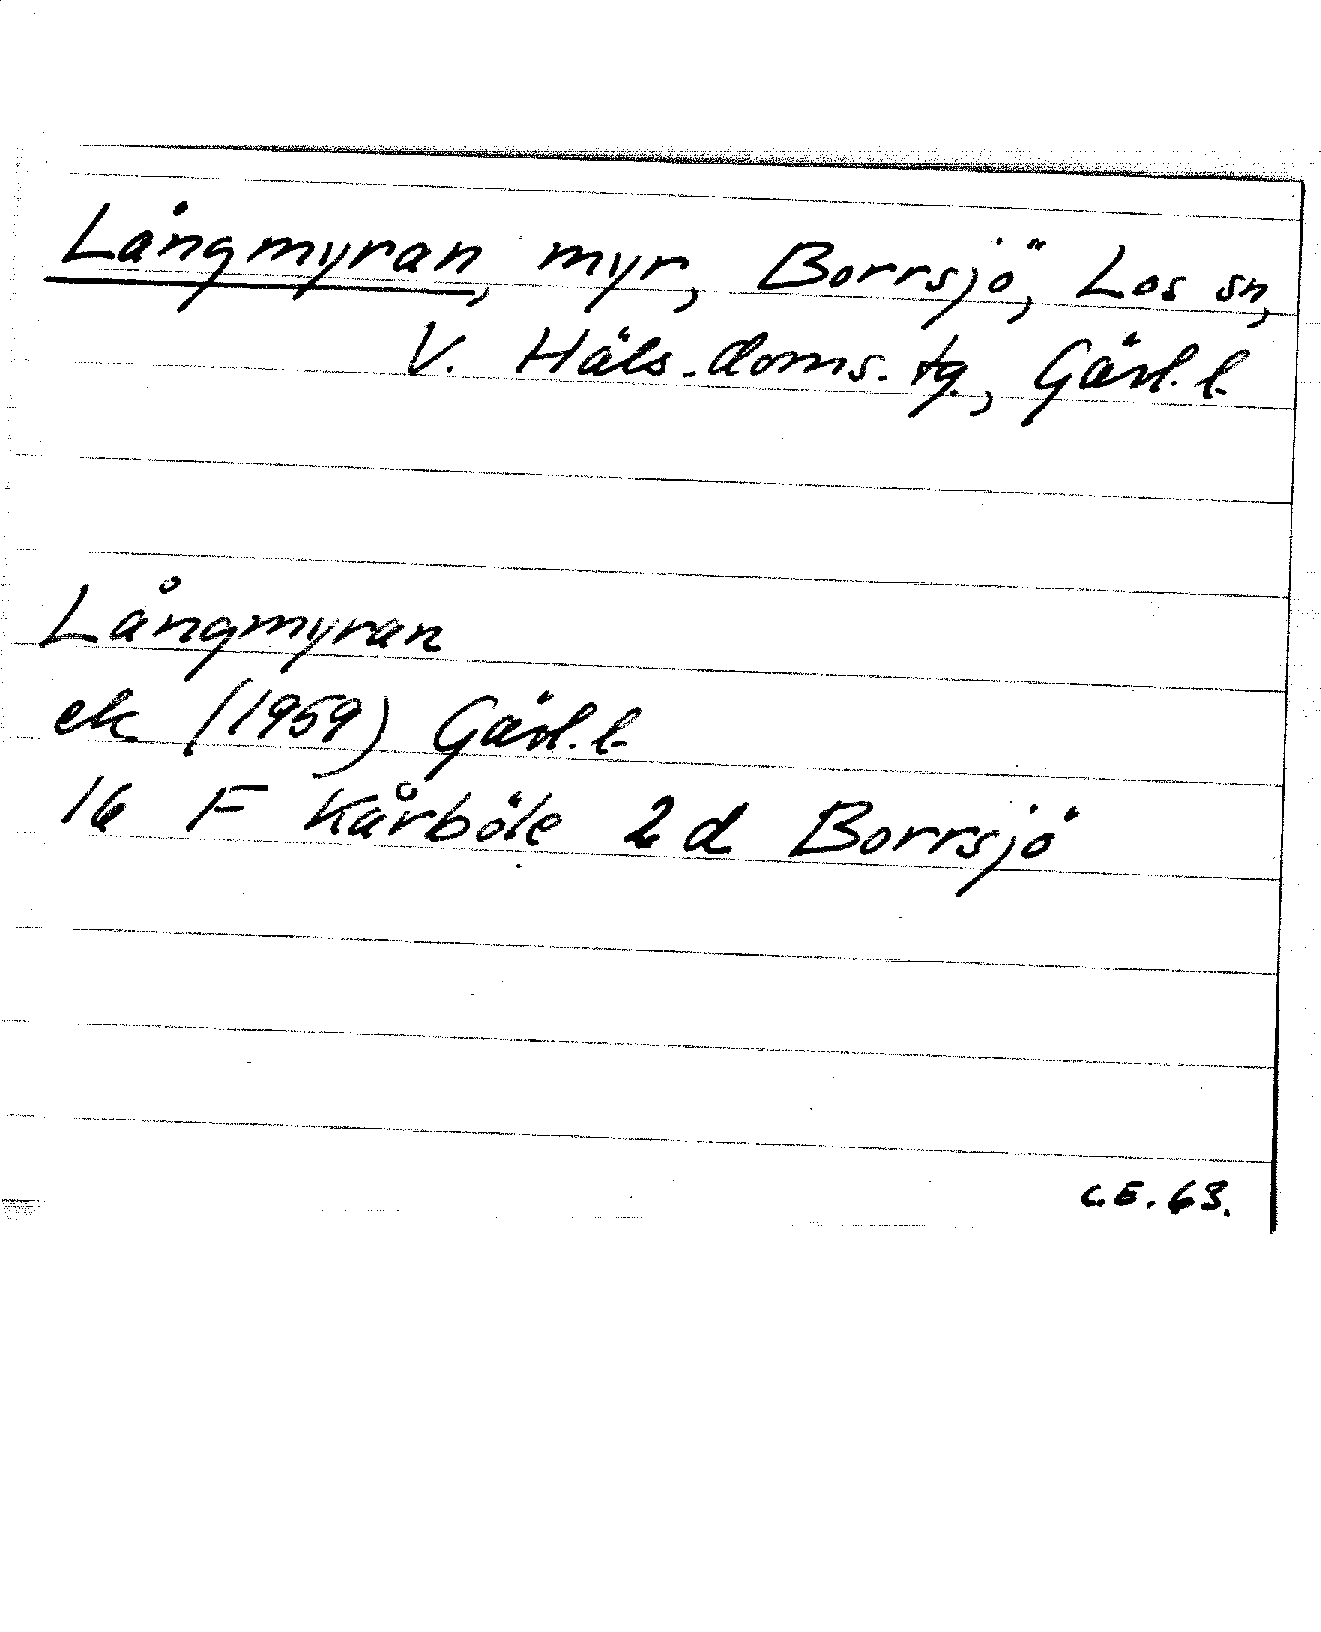 Långmyran, myr, Borrsjö, Los sn,
V. Häls. doms. tg., Gävl. l.
Långmyran
ek (1959) Gävl. l.
16 F Kårböle 2 d Borrsjö
C.E. 63.